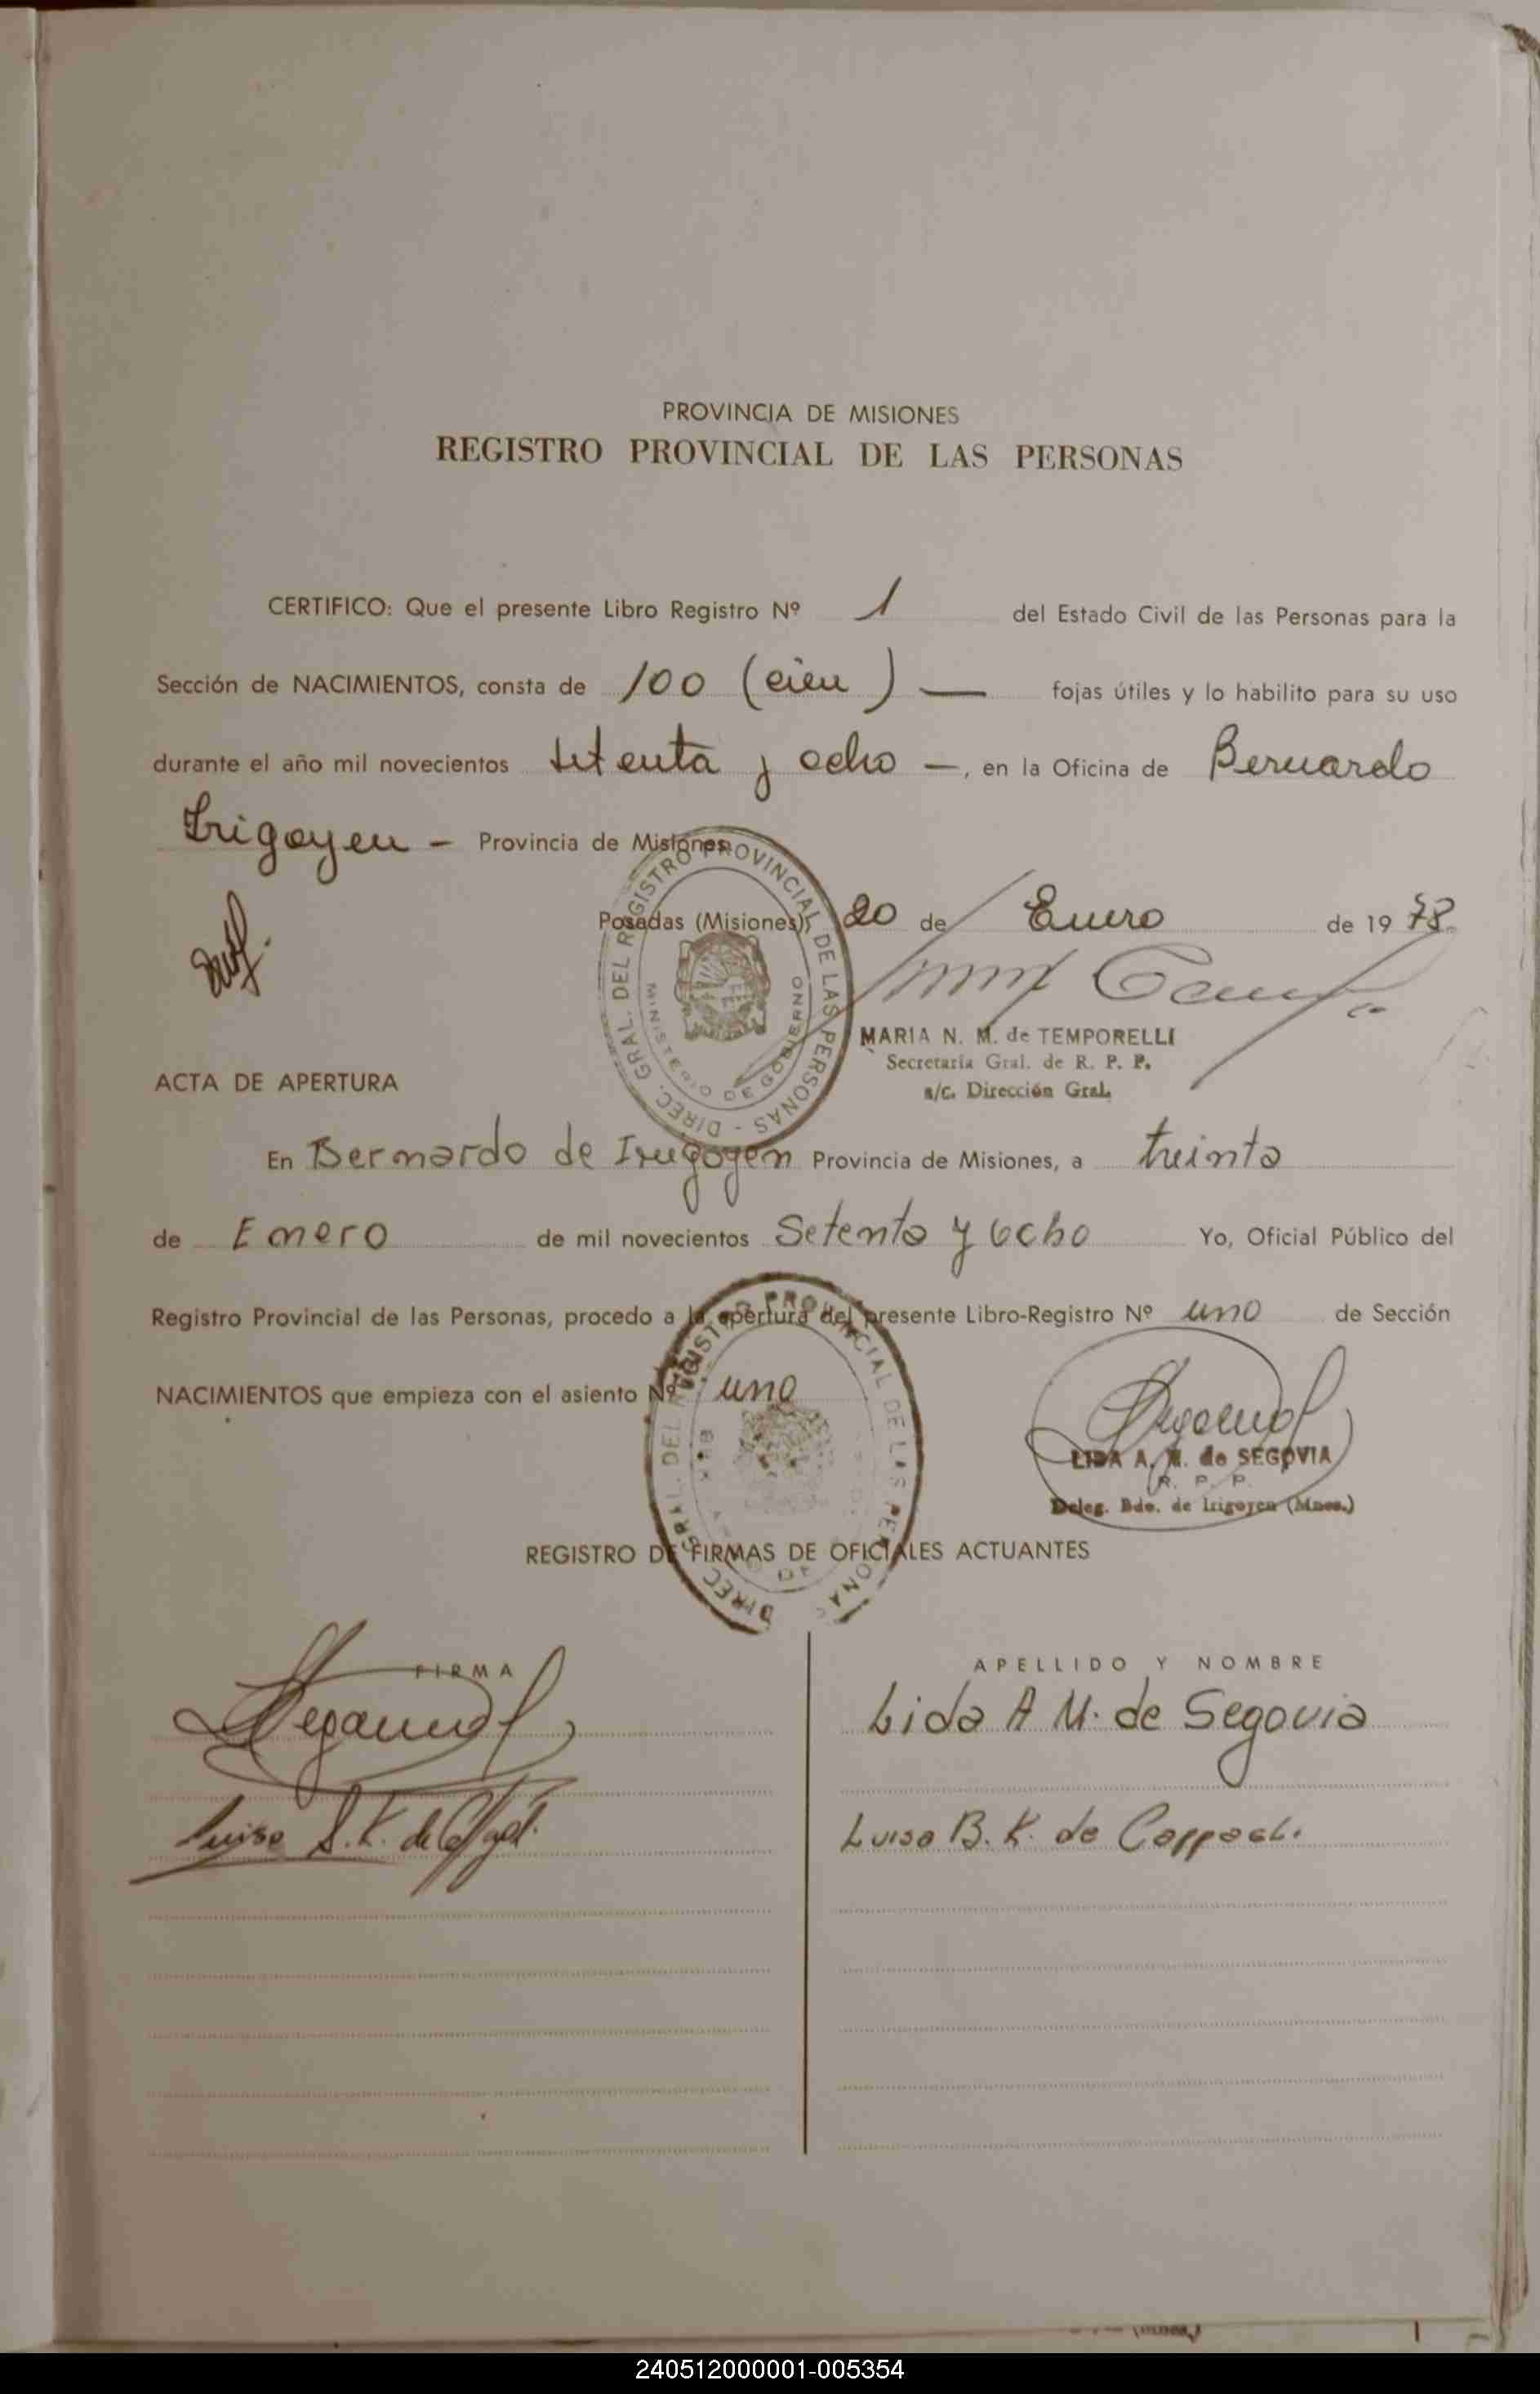 PROVINCIA DE MISIONES
REGISTRO PROVINCIAL DE LAS PERSONAS
CERTIFICO: Que el presente Libro Registro Nº 1 del Estado Civil de las Personas para la
Sección de NACIMIENTOS, consta de 100 (cien) — fojas útiles y lo habilito para su uso
durante el año mil novecientos setenta y ocho —, en la Oficina de Bernardo
Irigoyen - Provincia de Misiones.
Posadas (Misiones), 20 de Enero de 1978.
DIREC. GRAL. DEL REGISTRO PROVINCIAL DE LAS PERSONAS -
MINISTERIO DE GOBIERNO
MARIA N. M. de TEMPORELLI
Secretaria Gral. de R. P. P.
a/c. Dirección Gral.
ACTA DE APERTURA
En Bernardo de Irigoyen Provincia de Misiones, a treinta
de Enero de mil novecientos Setenta y ocho Yo, Oficial Público del
Registro Provincial de las Personas, procedo a la apertura del presente Libro-Registro Nº uno de Sección
NACIMIENTOS que empieza con el asiento Nº uno
LIDA A. M. de SEGOVIA
R. P. P.
Deleg. Bdo. de Irigoyen (Mnes.)
REGISTRO DE FIRMAS DE OFICIALES ACTUANTES
FIRMA
APELLIDO Y NOMBRE
Lida A M. de Segovia
Luisa B. K. de
240512000001-005354